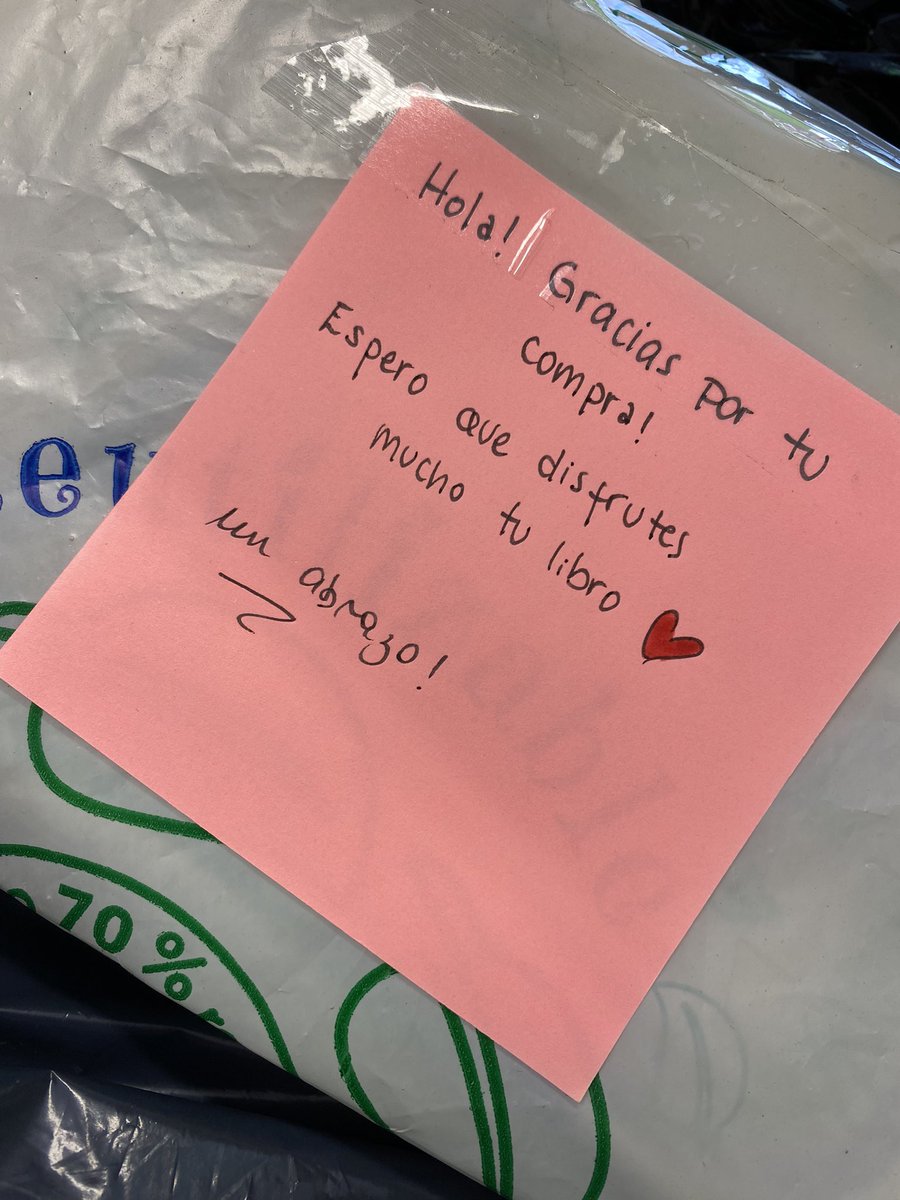 Hola! Gracias por tu
compra!
Espero que disfrutes
mucho tu libro
un abrazo!
70%